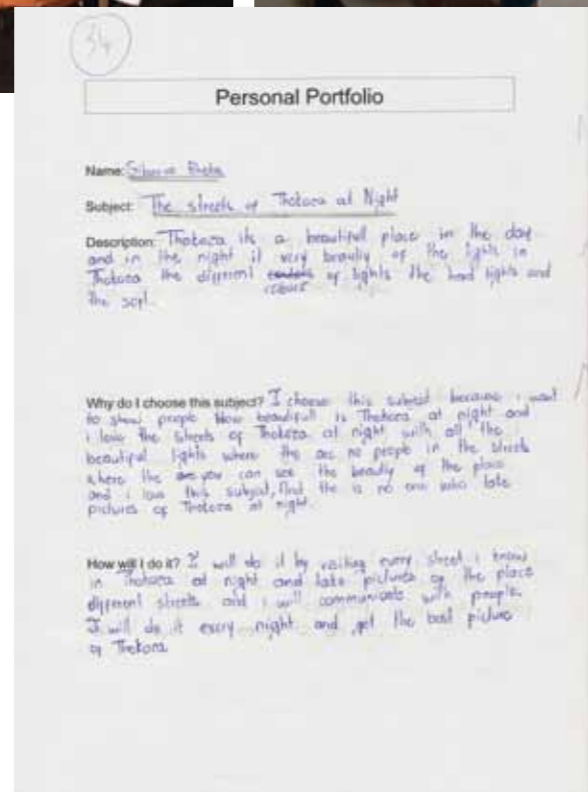 34
Personal Portfolio
Name:
Subject: The streets of Thokoza at Night
Description: Thokoza its a beautiful place in the day
and in the night it very beauty of the lights in
Thokoza the different of lights the hard lights and
colours
the soft.
Why do I choose this subject? I choose this subject because i want
to show people How beautifull is Thokoza at night and
i love the streets of Thokoza at night with all the
beautiful lights where the are no people in the streets
where the you can see the beauty of the place
and i love this subject, find the is no one who take
pictures of Thokoza at night.
How will I do it? I will do it by visiting every street i know
in Thokoza at night and take pictures of the place
different streets and i will communicate with people.
I will do it every night and get the best picture
of Thokoza